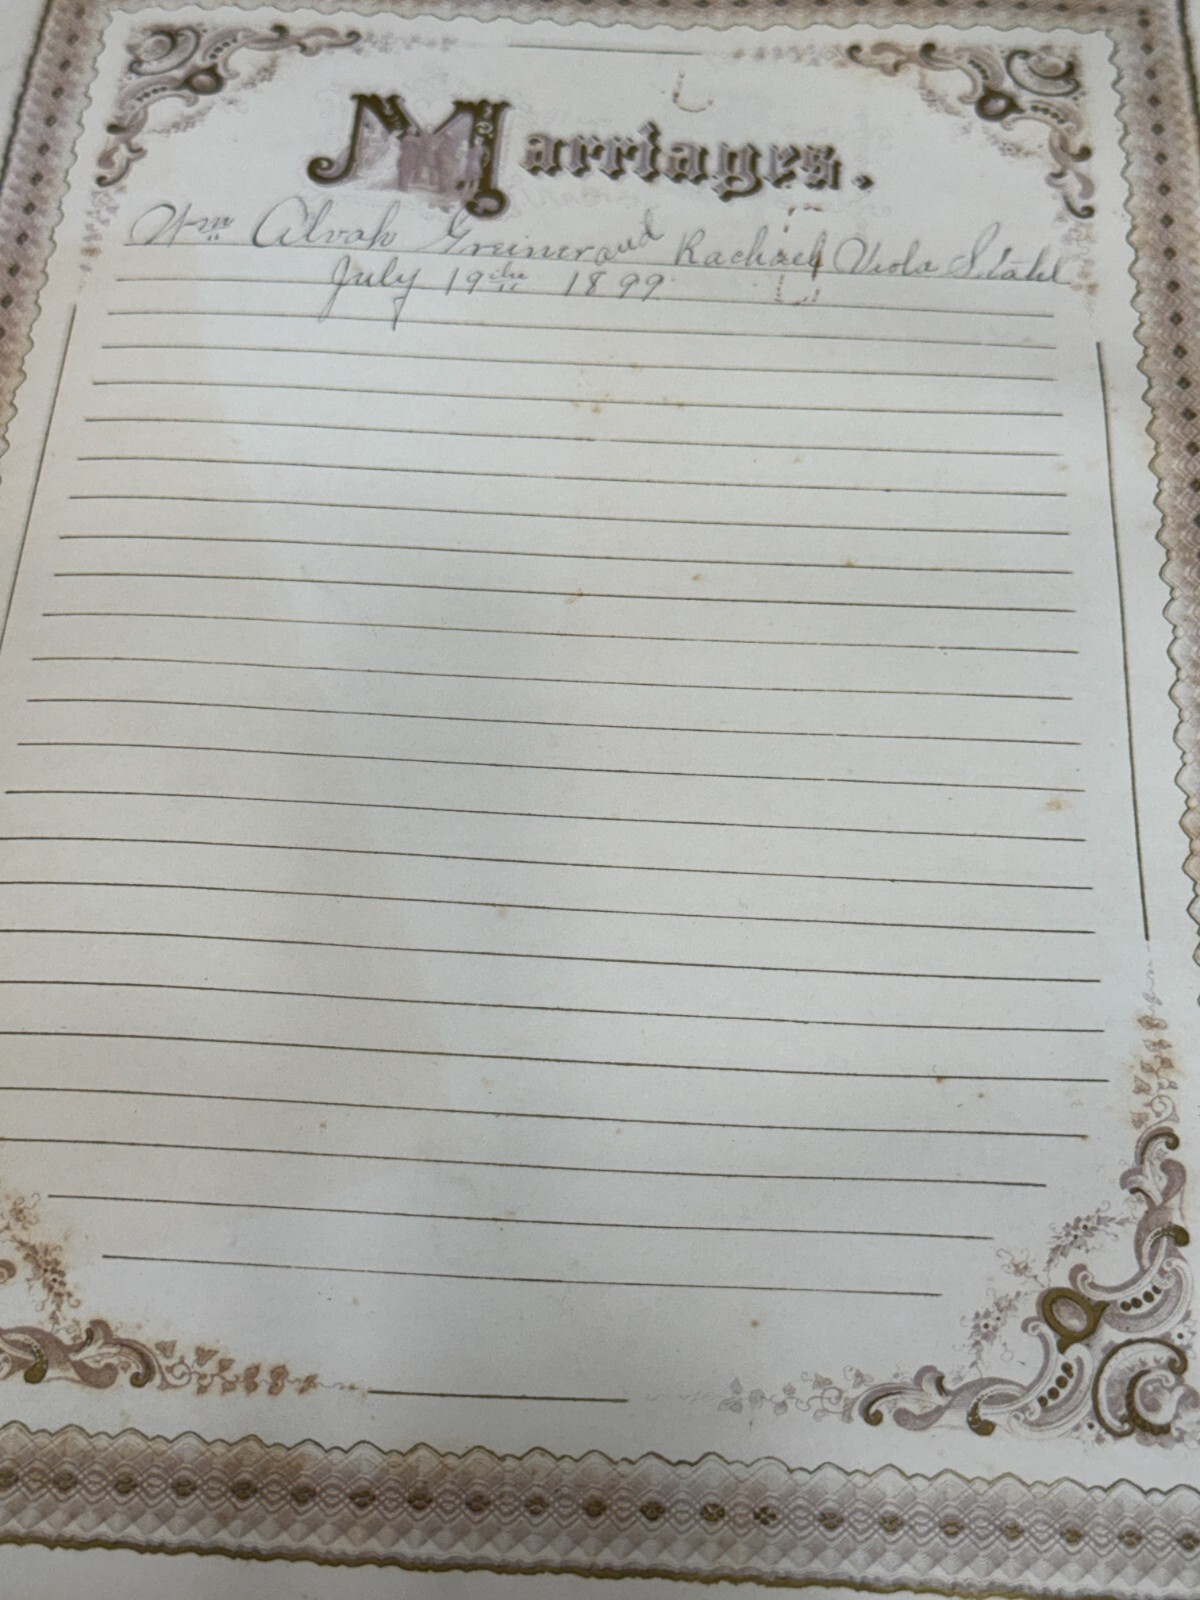 Marriages.
Wm Alvah Greiner and Rachael Viola Stahl
July 19th 1899